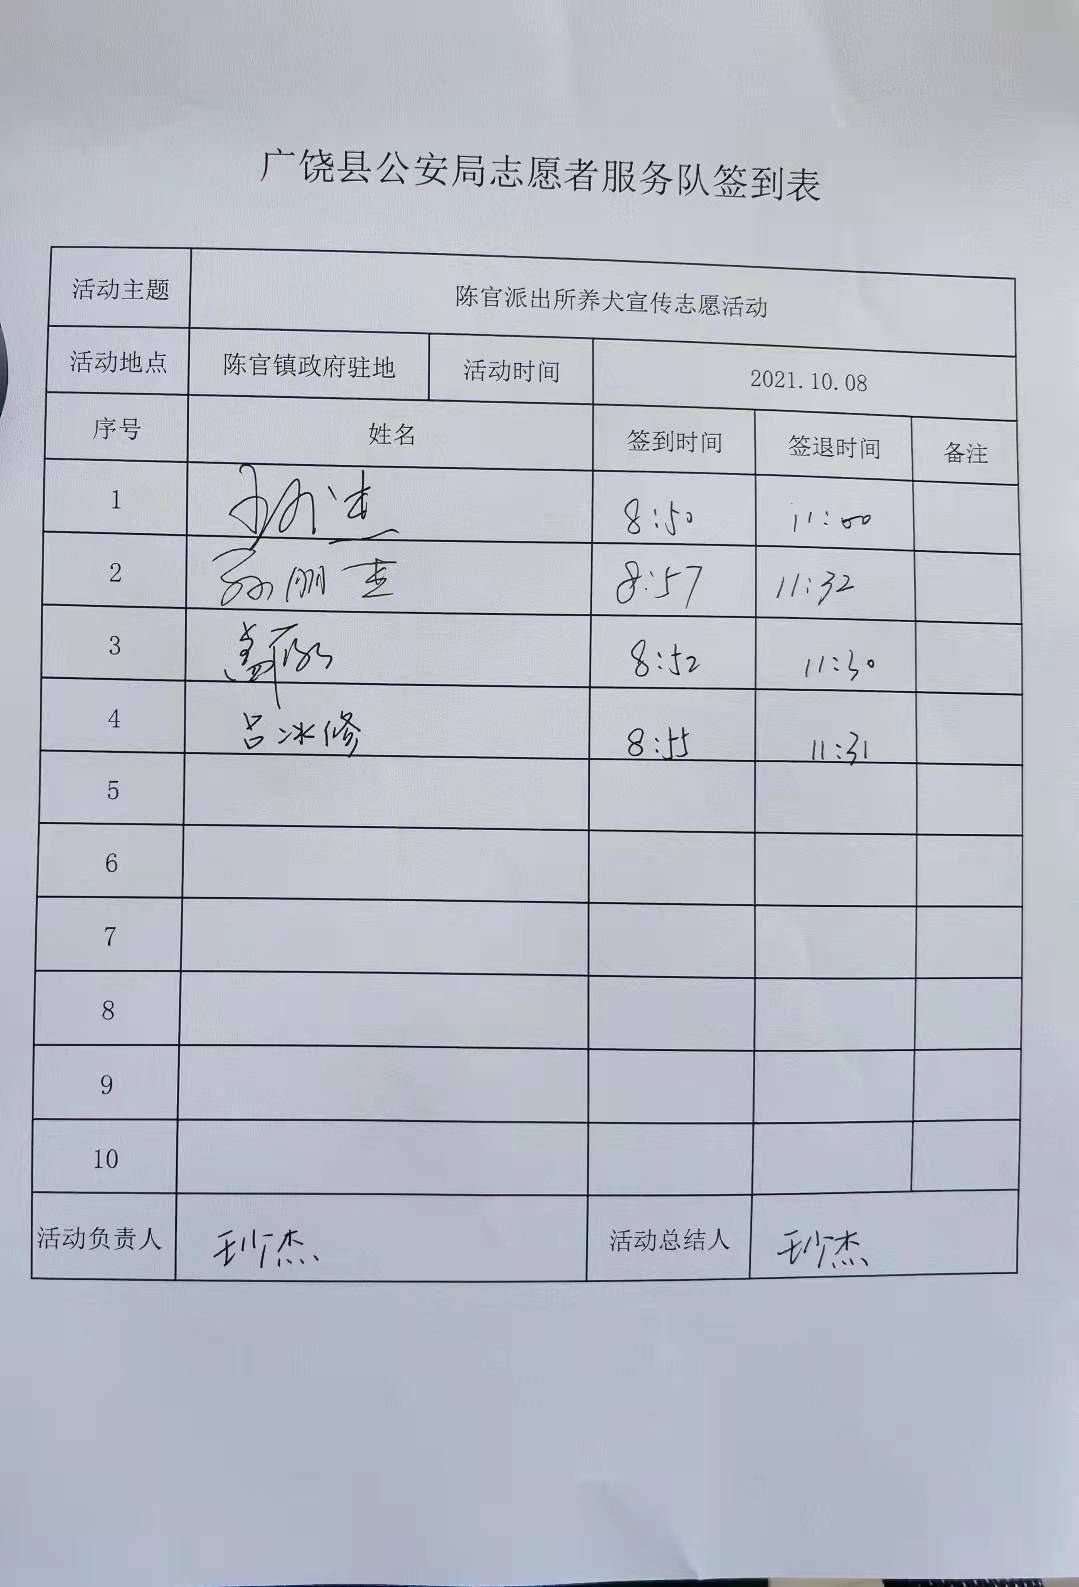 广饶县公安局志愿者服务队签到表
活动主题 陈官派出所养犬宣传志愿活动
活动地点 陈官镇政府驻地 活动时间 2021.10.08
序号 姓名 签到时间 签退时间 备注
1 8:50 11:00
2 孙朋杰 8:57 11:32
3 8:52 11:30
4 吕冰修 8:55 11:31
5
6
7
8
9
10
活动负责人 杰 活动总结人 杰